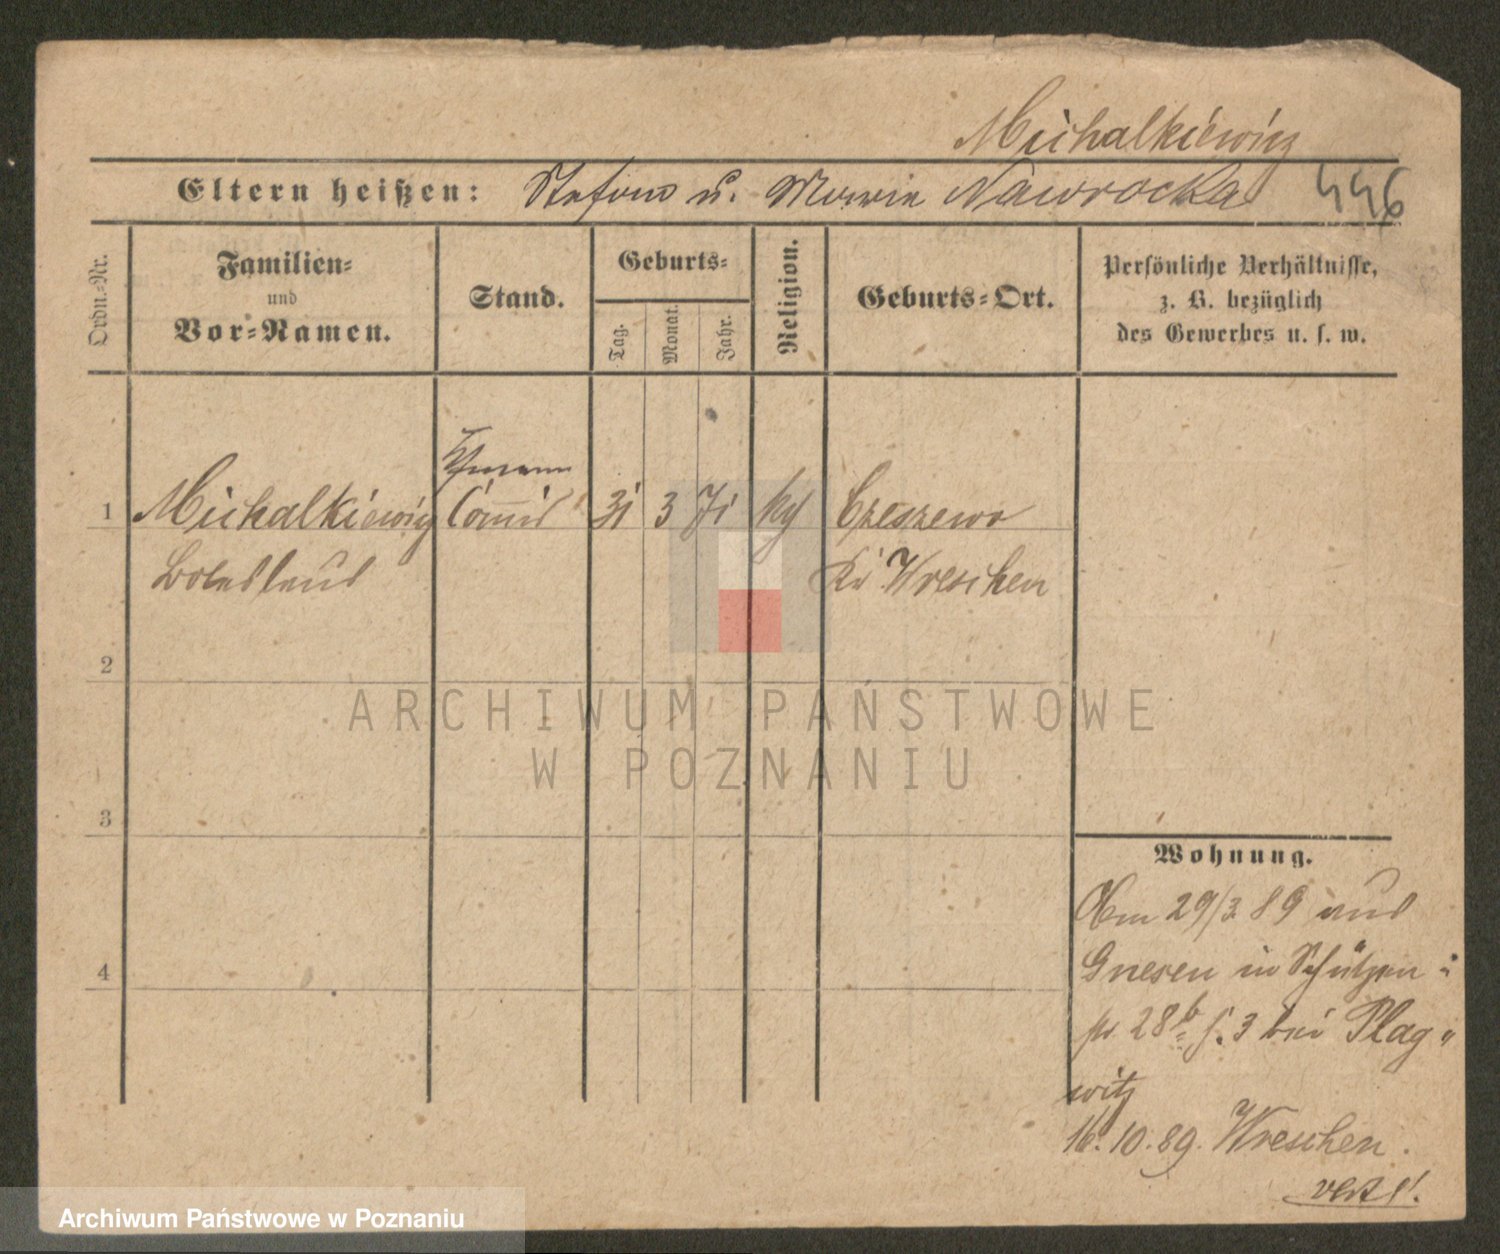 Michalkiewicz
Eltern heißen: Stefan u. Marie Nawrocka 446
Ordn.-Nr.
Familien-
und
Vor-Namen.
Stand.
Geburts-
Tag.
Monat.
Jahr.
Religion.
Geburts-Ort.
Persönliche Verhältnisse,
z. B. bezüglich
des Gewerbes u. s. w.
1 Michalkiewicz Commis 31 3 71 kg Czeszewo
Boleslaus Kr Wreschen
2
3
4
Wohnung.
Am 29/3 89 aus
Gnesen in Schützen-
str 28b b. 3 bei Plag-
witz
16.10.89. Wreschen.
vert!
ARCHIWUM PAŃSTWOWE
W POZNANIU
Archiwum Państwowe w Poznaniu